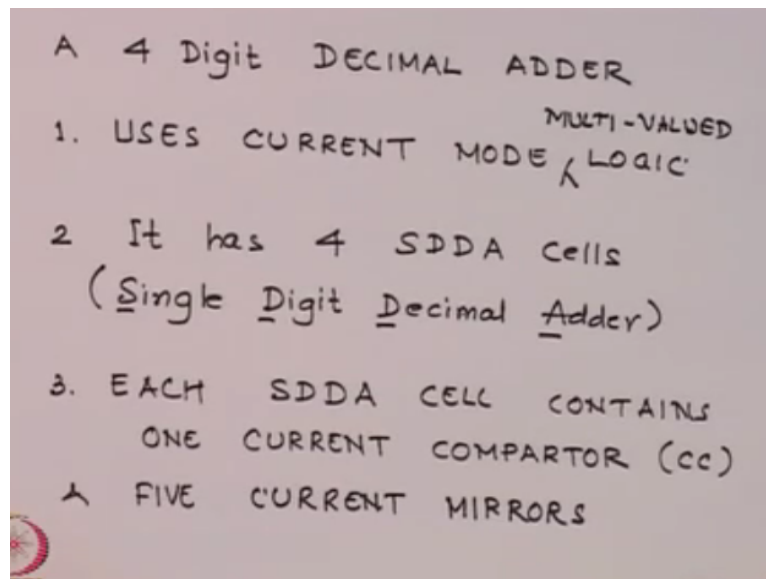 A 4 Digit DECIMAL ADDER
MULTI-VALUED
1. USES CURRENT MODE ⁁ LOGIC
2 It has 4 SDDA Cells
(Single Digit Decimal Adder)
3. EACH SDDA CELL CONTAINS
ONE CURRENT COMPARTOR (CC)
& FIVE CURRENT MIRRORS